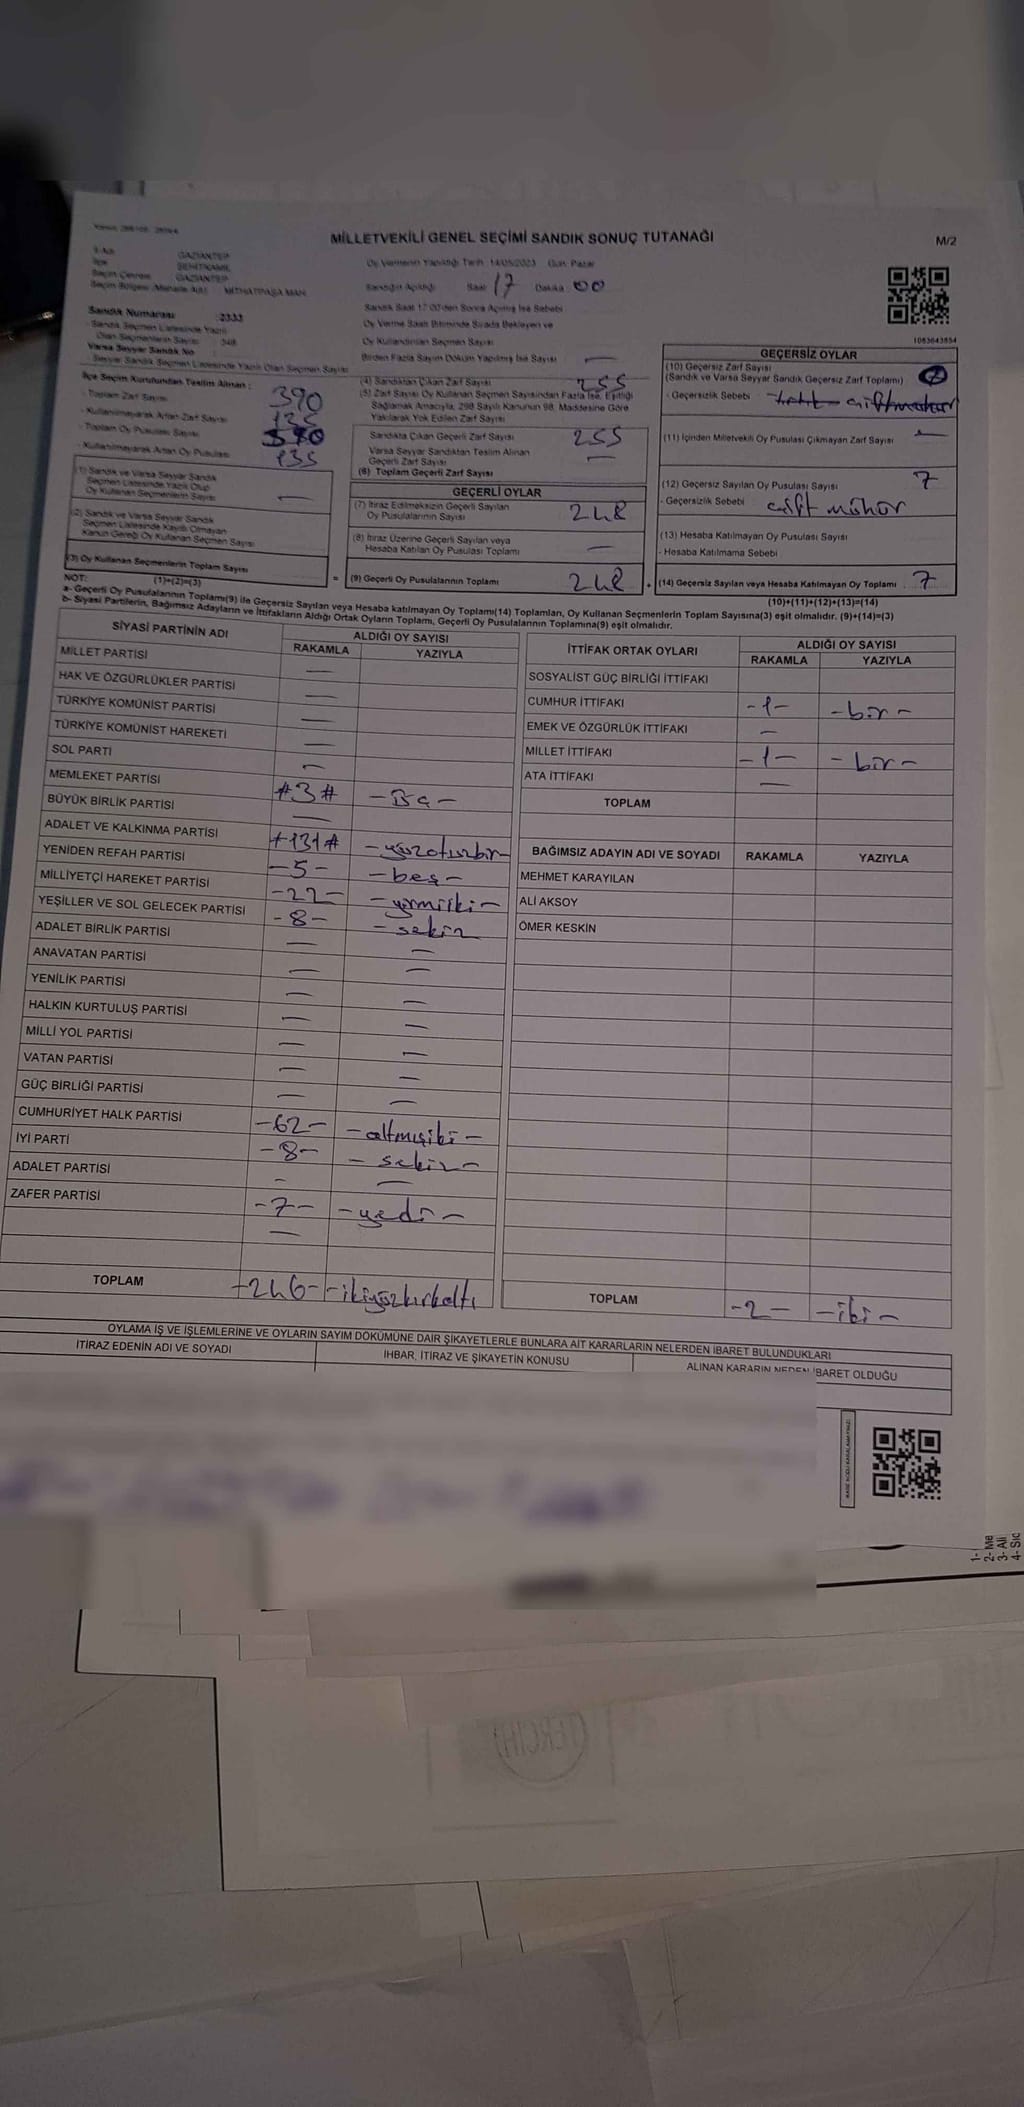 MİLLETVEKİLİ GENEL SEÇİMİ SANDIK SONUÇ TUTANAĞI
M/2
GAZİANTEP
Oy Vermenin Yapıldığı Tarih 14/05/2023 Gün Pazar
İlçe ŞEHİTKAMİL
Seçim Çevresi GAZİANTEP
Seçim Bölgesi (Mahalle Adı) MİTHATPAŞA MAH.
Sandığın Açıldığı Saat 17 Dakika 00
Sandık Saat 17:00'den Sonra Açılmış İse Sebebi
Sandık Numarası :2333
Sandık Seçmen Listesinde Yazılı
Olan Seçmenlerin Sayısı
Varsa Seyyar Sandık No
Seyyar Sandık Seçmen Listesinde Yazılı Olan Seçmen Sayısı
Oy Verme Saati Bitiminde Sırada Bekleyen ve
Oy Kullandırılan Seçmen Sayısı
Birden Fazla Sayım Döküm Yapılmış İse Sayısı —
İlçe Seçim Kurulundan Teslim Alınan :
- Toplam Zarf Sayısı 390
- Kullanılmayarak Artan Zarf Sayısı 135
- Toplam Oy Pusulası Sayısı 390
- Kullanılmayarak Artan Oy Pusulası 135
(1) Sandık ve Varsa Seyyar Sandık
Seçmen Listesinde Yazılı Olup
Oy Kullanan Seçmenlerin Sayısı —
(2) Sandık ve Varsa Seyyar Sandık
Seçmen Listesinde Kayıtlı Olmayan
Kanun Gereği Oy Kullanan Seçmen Sayısı
(3) Oy Kullanan Seçmenlerin Toplam Sayısı
(1)+(2)=(3)
(4) Sandıktan Çıkan Zarf Sayısı 255
(5) Zarf Sayısı Oy Kullanan Seçmen Sayısından Fazla İse, Eşitliği
Sağlamak Amacıyla, 298 Sayılı Kanunun 98. Maddesine Göre
Yakılarak Yok Edilen Zarf Sayısı
Sandıkta Çıkan Geçerli Zarf Sayısı 255
Varsa Seyyar Sandıktan Teslim Alınan
Geçerli Zarf Sayısı —
(6) Toplam Geçerli Zarf Sayısı
GEÇERLİ OYLAR
(7) İtiraz Edilmeksizin Geçerli Sayılan
Oy Pusulalarının Sayısı 248
(8) İtiraz Üzerine Geçerli Sayılan veya
Hesaba Katılan Oy Pusulası Toplamı —
= (9) Geçerli Oy Pusulalarının Toplamı 248 +
1083643854
GEÇERSİZ OYLAR
(10) Geçersiz Zarf Sayısı
(Sandık ve Varsa Seyyar Sandık Geçersiz Zarf Toplamı)
- Geçersizlik Sebebi
(11) İçinden Milletvekili Oy Pusulası Çıkmayan Zarf Sayısı —
(12) Geçersiz Sayılan Oy Pusulası Sayısı 7
- Geçersizlik Sebebi çift mühür
(13) Hesaba Katılmayan Oy Pusulası Sayısı
- Hesaba Katılmama Sebebi
(14) Geçersiz Sayılan veya Hesaba Katılmayan Oy Toplamı 7
(10)+(11)+(12)+(13)=(14)
NOT:
a- Geçerli Oy Pusulalarının Toplamı(9) ile Geçersiz Sayılan veya Hesaba katılmayan Oy Toplamı(14) Toplamları, Oy Kullanan Seçmenlerin Toplam Sayısına(3) eşit olmalıdır. (9)+(14)=(3)
b- Siyasi Partilerin, Bağımsız Adayların ve İttifakların Aldığı Ortak Oyların Toplamı, Geçerli Oy Pusulalarının Toplamına(9) eşit olmalıdır.
SİYASİ PARTİNİN ADI ALDIĞI OY SAYISI
RAKAMLA YAZIYLA
MİLLET PARTİSİ —
HAK VE ÖZGÜRLÜKLER PARTİSİ —
TÜRKİYE KOMÜNİST PARTİSİ —
TÜRKİYE KOMÜNİST HAREKETİ —
SOL PARTİ —
MEMLEKET PARTİSİ #3# -üç-
BÜYÜK BİRLİK PARTİSİ —
ADALET VE KALKINMA PARTİSİ #131# -yüzotuzbir-
YENİDEN REFAH PARTİSİ -5- -beş-
MİLLİYETÇİ HAREKET PARTİSİ -22- -yirmiiki-
YEŞİLLER VE SOL GELECEK PARTİSİ -8- -sekiz
ADALET BİRLİK PARTİSİ — —
ANAVATAN PARTİSİ — —
YENİLİK PARTİSİ — —
HALKIN KURTULUŞ PARTİSİ — —
MİLLİ YOL PARTİSİ — —
VATAN PARTİSİ — —
GÜÇ BİRLİĞİ PARTİSİ — —
CUMHURİYET HALK PARTİSİ -62- -altmışiki-
İYİ PARTİ -8- -sekiz-
ADALET PARTİSİ - —
ZAFER PARTİSİ -7- -yedi-
—
TOPLAM -246- -ikiyüzkırkaltı
İTTİFAK ORTAK OYLARI ALDIĞI OY SAYISI
RAKAMLA YAZIYLA
SOSYALİST GÜÇ BİRLİĞİ İTTİFAKI
CUMHUR İTTİFAKI -1- -bir-
EMEK VE ÖZGÜRLÜK İTTİFAKI —
MİLLET İTTİFAKI -1- -bir-
ATA İTTİFAKI —
TOPLAM
BAĞIMSIZ ADAYIN ADI VE SOYADI RAKAMLA YAZIYLA
MEHMET KARAYILAN
ALİ AKSOY
ÖMER KESKİN
TOPLAM -2- -iki-
OYLAMA İŞ VE İŞLEMLERİNE VE OYLARIN SAYIM DÖKÜMÜNE DAİR ŞİKAYETLERLE BUNLARA AİT KARARLARIN NELERDEN İBARET BULUNDUKLARI
İTİRAZ EDENİN ADI VE SOYADI
İHBAR, İTİRAZ VE ŞİKAYETİN KONUSU
ALINAN KARARIN NEDEN İBARET OLDUĞU
1-
2- Me
3- Ali
4- Sıc
TERCİH